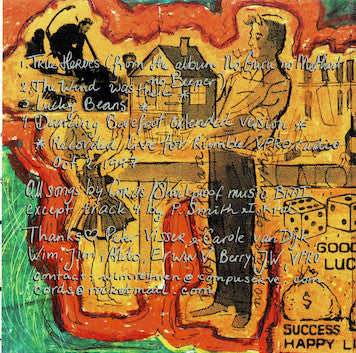 1. True Heroes (from the album No Guru no Method
no Beeper
2. The Wind was there *
3. Lucky Beans *
4. Dancing Barefoot extended version *
* Recorded live for Rumble VPRO radio
Oct 2 1997
All songs by Cords / Smokproof music
Except track 4 by P. Smith
Thanks ♡ Peter Visser & Carole van Dijk
Wim. Jim, Erwin V Berry J.W, VPRO
Contact: @compuserve.com
Cords@rocketmail.com
GOOD
LUC
SUCCESS
HAPPY LI